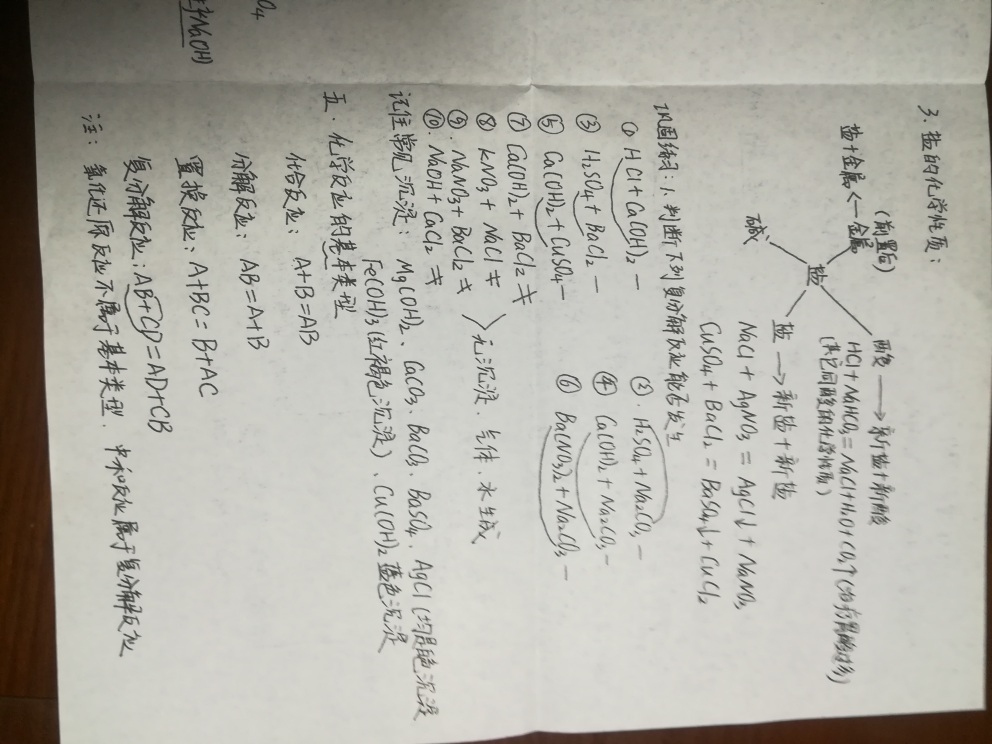 3. 盐的化学性质:
盐+金属←金属
(前置后)
酸→新盐+新酸
HCl+NaHCO₃=NaCl+H₂O+CO₂↑(治疗胃酸过多)
(其它同酸的化学性质)
盐
碱
盐→新盐+新盐
NaCl+AgNO₃=AgCl↓+NaNO₃
CuSO₄+BaCl₂=BaSO₄↓+CuCl₂
巩固练习:1.判断下列复分解反应能否发生
① HCl+Ca(OH)₂— ②.H₂SO₄+Na₂CO₃—
③ H₂SO₄+BaCl₂— ④ Ca(OH)₂+Na₂CO₃—
⑤ Ca(OH)₂+CuSO₄— ⑥ Ba(NO₃)₂+Na₂CO₃—
⑦ Ca(OH)₂+BaCl₂≠
⑧ KNO₃+NaCl≠
⑨.NaNO₃+BaCl₂≠ 无沉淀.气体.水生成
⑩.NaOH+CaCl₂≠
记住常见沉淀:Mg(OH)₂、CaCO₃、BaCO₃、BaSO₄、AgCl(均是白色沉淀
Fe(OH)₃(红褐色沉淀)、Cu(OH)₂蓝色沉淀
五.化学反应的基本类型
化合反应:A+B=AB
分解反应:AB=A+B
置换反应:A+BC=B+AC
复分解反应:AB+CD=AD+CB
注:氧化还原反应不属于基本类型.中和反应属于复分解反应
O₄
NaOH)